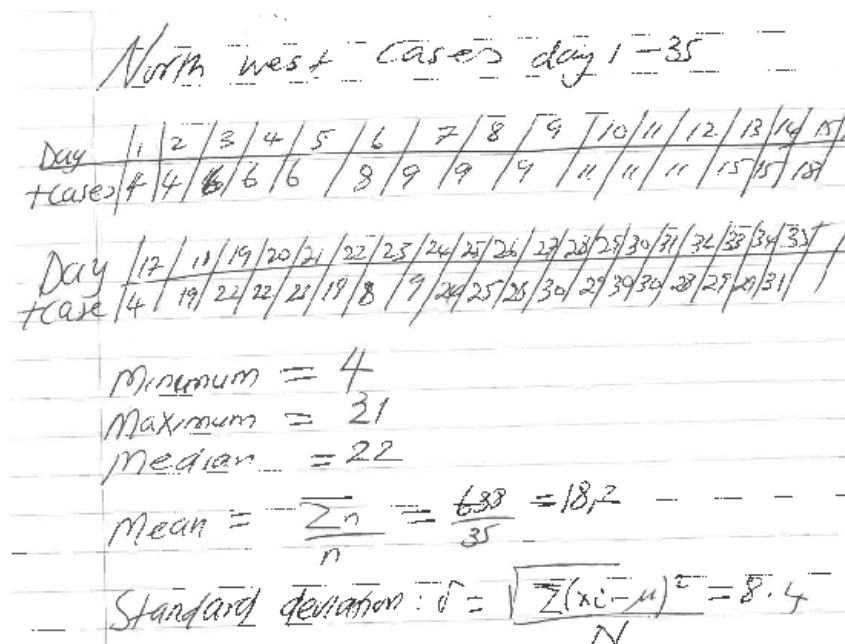 North west cases day 1-35
Day 1 2 3 4 5 6 7 8 9 10 11 12 13 14 15
+cases 4 4 6 6 6 8 9 9 9 11 11 11 15 15 18
Day 17 18 19 20 21 22 23 24 25 26 27 28 29 30 31 32 33 34 35
+case 4 19 22 22 21 19 8 9 26 25 28 30 29 30 30 28 29 29 31
Minumum = 4
Maximum = 31
Median = 22
Mean = Σn/n = 638/35 = 18,2
Standard deviation: σ = √Σ(xi-μ)²/N = 8.4